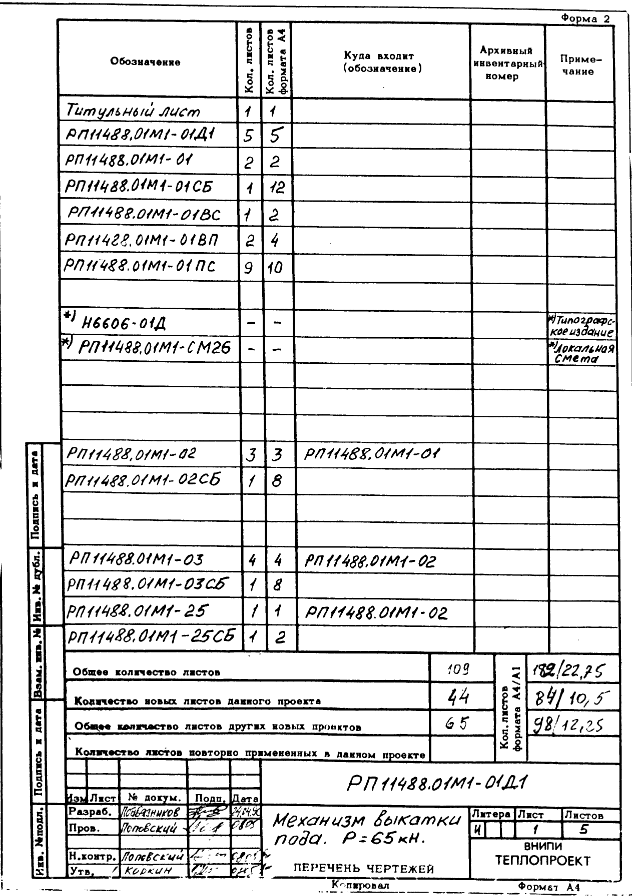 Форма 2
Обозначение
Кол. листов
Кол. листов формата А4
Куда входит
(обозначение)
Архивный
инвентарный
номер
Приме-
чание
Титульный лист 1 1
РП11488.01М1-01Д1 5 5
РП11488.01М1-01 2 2
РП11488.01М1-01СБ 1 12
РП11488.01М1-01ВС 1 2
РП11428.01М1-01ВП 2 4
РП11488.01М1-01ПС 9 10
*) Н6606-01Д - - *)Типографс-
кое издание
*) РП11488.01М1-СМ26 - - *)Локальная
смета
РП11488.01М1-02 3 3 РП11488.01М1-01
РП11488.01М1-02СБ 1 8
РП11488.01М1-03 4 4 РП11488.01М1-02
РП11488.01М1-03СБ 1 8
РП11488.01М1-25 1 1 РП11488.01М1-02
РП11488.01М1-25СБ 1 2
Общее количество листов 109
Кол. листов формата А4/А1
182/22,75
Количество новых листов данного проекта 44 84/10,5
Общее количество листов других новых проектов 65 98/12,25
Количество листов повторно примененных в данном проекте
РП11488.01М1-01Д1
Изм Лист № докум. Подп. Дата
Разраб.
Пров. Поповский
Н.контр. Поповский
Утв. Коркин
Механизм выкатки
пода. Р=65кН.
ПЕРЕЧЕНЬ ЧЕРТЕЖЕЙ
Литера Лист Листов
И 1 5
ВНИПИ
ТЕПЛОПРОЕКТ
Копировал Формат А4
Подпись и дата
Инв. № дубл.
Взам. инв. №
Подпись и дата
Инв. № подл.